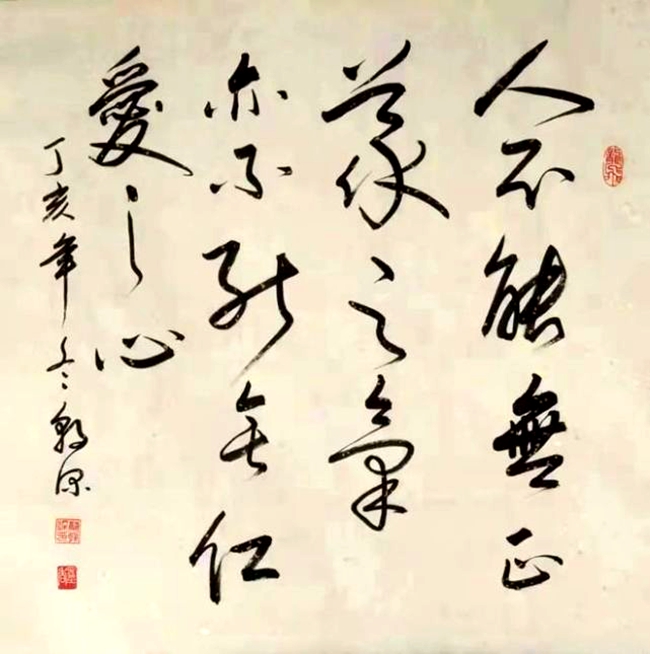 人不能無正
義之氣
亦不能無仁
愛之心
丁亥年冬